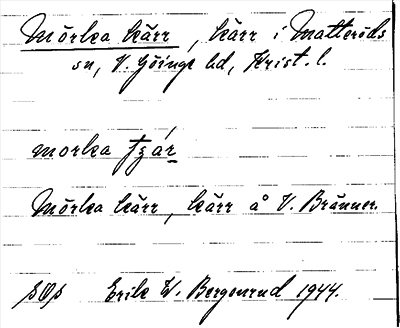 Mörka kärr, kärr i Matteröds
sn, V. Göinge hd, Krist. l.
morka tʒár
Mörka kärr, kärr å V. Bränner.
Erik W. Bergenrud 1944.